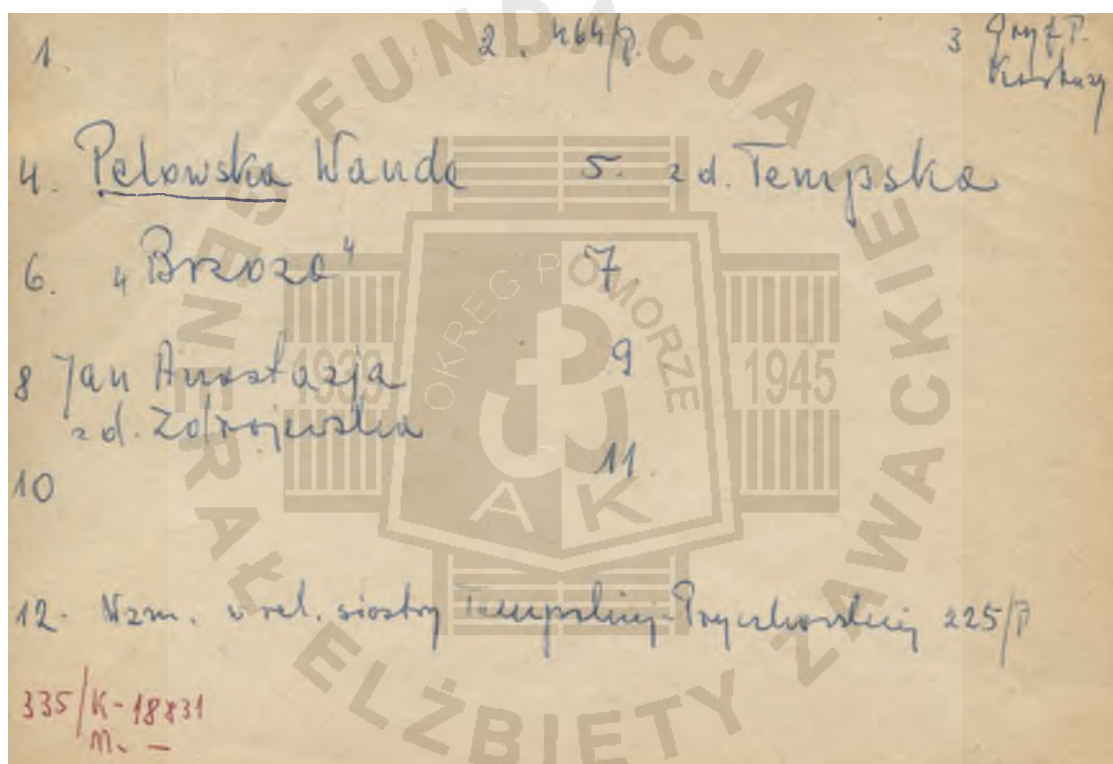 1. 2. 464/P. 3 Gryf P.
Kartuzy
4. Pelowska Wanda 5. z d. Tempska
6. "Brzoza" 7
8 Jan Anastazja 9
z d. Zdrojewska
10 11.
12. Wzm. w rel. siostry Tempskiej- 225/P
335/K-18831
M. -
FUNDACJA
GENERAŁ ELŻBIETY ZAWACKIE
OKRĘG POMORZE
1939 1945
AK